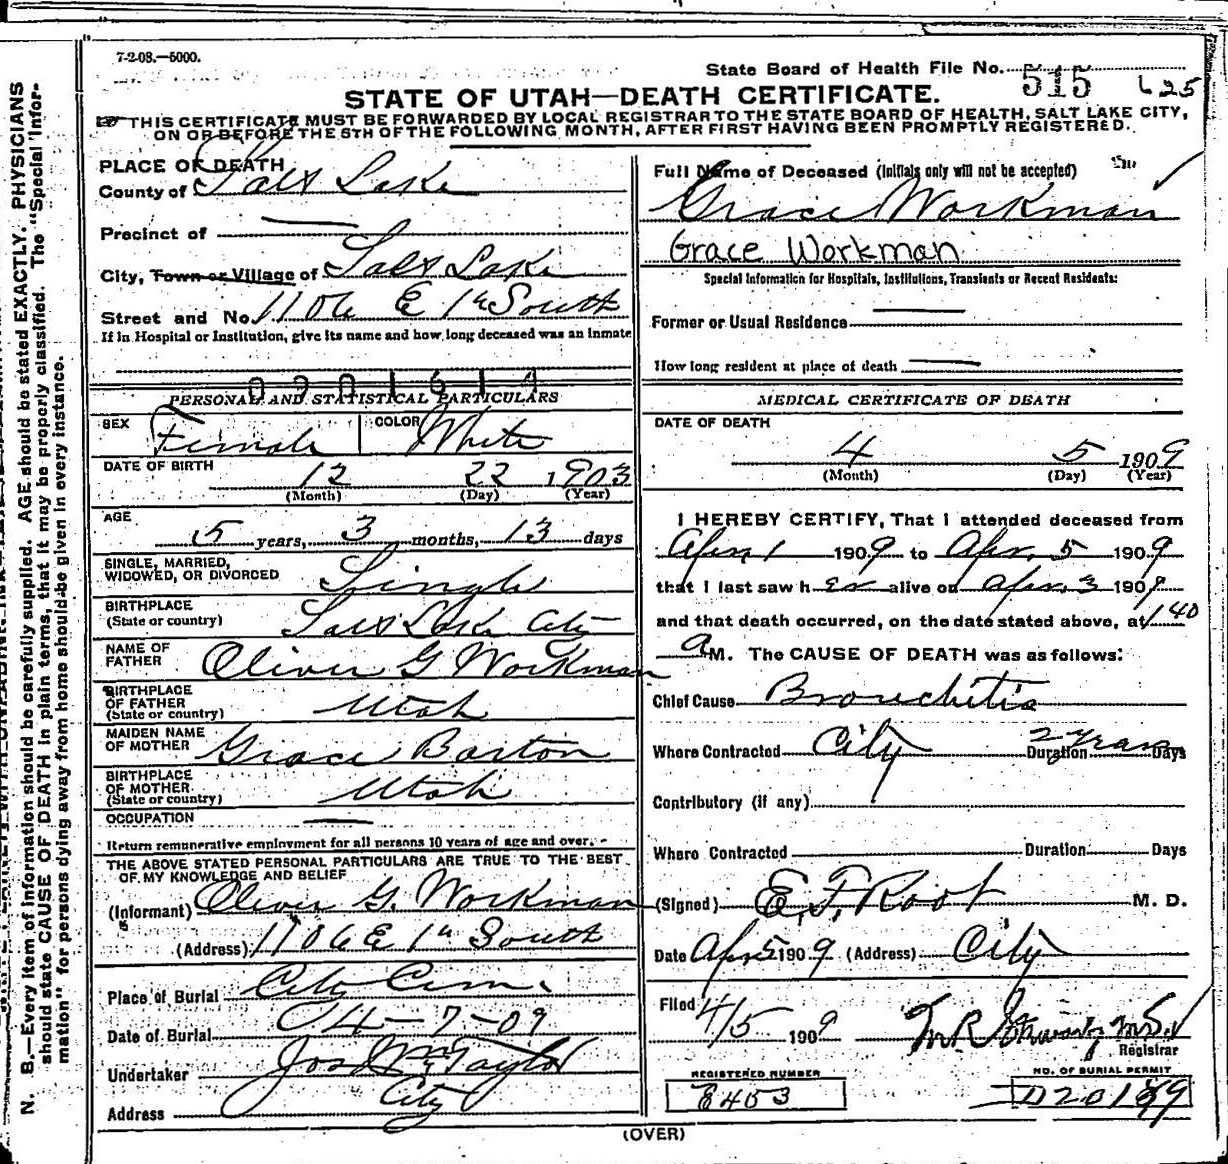 7-2-08.—5000.
State Board of Health File No. 515 625
STATE OF UTAH—DEATH CERTIFICATE.
THIS CERTIFICATE MUST BE FORWARDED BY LOCAL REGISTRAR TO THE STATE BOARD OF HEALTH, SALT LAKE CITY,
ON OR BEFORE THE 5TH OF THE FOLLOWING MONTH, AFTER FIRST HAVING BEEN PROMPTLY REGISTERED.
PLACE OF DEATH
County of Salt Lake
Precinct of
City, Town or Village of Salt Lake
Street and No. 1106 E 1st South
If in Hospital or Institution, give its name and how long deceased was an inmate
PERSONAL AND STATISTICAL PARTICULARS
SEX Female COLOR White
DATE OF BIRTH 12 22 1903
(Month) (Day) (Year)
AGE
5 years, 3 months, 13 days
SINGLE, MARRIED,
WIDOWED, OR DIVORCED Single
BIRTHPLACE
(State or country) Salt Lake City
NAME OF
FATHER Oliver G Workman
BIRTHPLACE
OF FATHER
(State or country) Utah
MAIDEN NAME
OF MOTHER Grace Barton
BIRTHPLACE
OF MOTHER
(State or country) Utah
OCCUPATION
Return remunerative employment for all persons 10 years of age and over.
THE ABOVE STATED PERSONAL PARTICULARS ARE TRUE TO THE BEST
OF MY KNOWLEDGE AND BELIEF
(Informant) Oliver G. Workman
(Address) 1106 E 1st South
Place of Burial City Cem.
Date of Burial 4-7-09
Undertaker Jos Wm Taylor
Address City
Full Name of Deceased (Initials only will not be accepted)
Grace Workman
Grace Workman
Special Information for Hospitals, Institutions, Transients or Recent Residents:
Former or Usual Residence
How long resident at place of death
MEDICAL CERTIFICATE OF DEATH
DATE OF DEATH
4 5 1909
(Month) (Day) (Year)
I HEREBY CERTIFY, That I attended deceased from
Apr 1 1909 to Apr. 5 1909
that I last saw her alive on Apr. 3 1909
and that death occurred, on the date stated above, at 1 40
a M. The CAUSE OF DEATH was as follows:
Chief Cause Bronchitis
Where Contracted City Duration 2 years Days
Contributory (if any)
Where Contracted Duration Days
(Signed) E. F. Root M. D.
Date Apr 5 1909 (Address) City
Filed 4/5 1909
Registrar
REGISTERED NUMBER
8453
NO. OF BURIAL PERMIT
(OVER)
N. B.—Every item of information should be carefully supplied. AGE should be stated EXACTLY. PHYSICIANS
should state CAUSE OF DEATH in plain terms, that it may be properly classified. The "Special Infor-
mation" for persons dying away from home should be given in every instance.